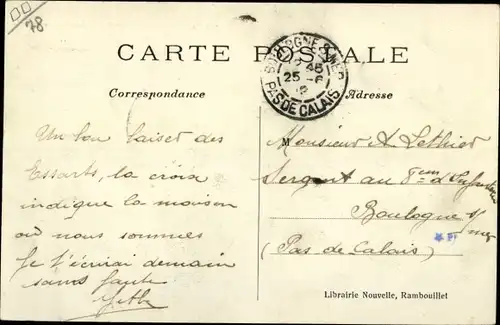 78
CARTE POSTALE
BOULOGNE S MER
45
25 - 6
PAS DE CALAIS
Correspondance
Adresse
Un bon baiser des
Essarts, la croix
indique la maison
où nous sommes
Je t'écrirai demain
sans faute
M
Monsieur A Lethier
Sergent au 8ème d'Infanterie
Boulogne s/
mer
(Pas de Calais)
Librairie Nouvelle, Rambouillet